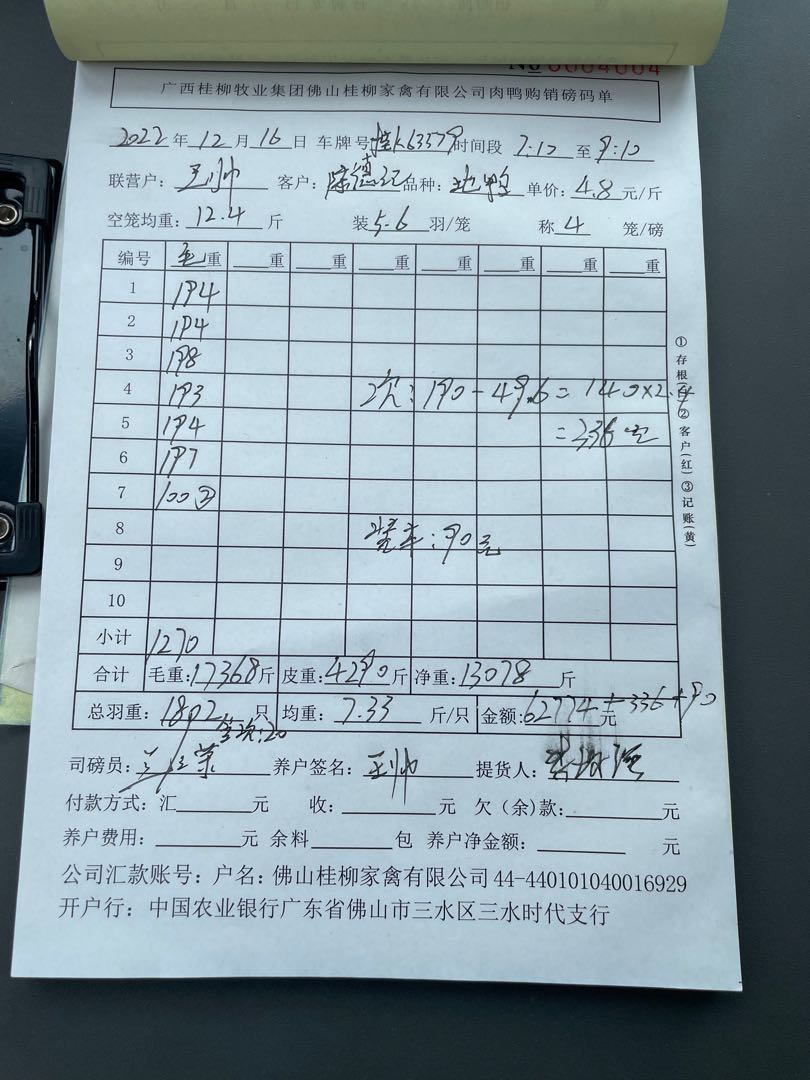 No 0004004
广西桂柳牧业集团佛山桂柳家禽有限公司肉鸭购销磅码单
2022年12月16日 车牌号桂K63579时间段 7:10 至 9:10
联营户：王帅 客户：陈德 品种：地鸭 单价：4.8元/斤
空笼均重：12.4斤 装5.6羽/笼 称4笼/磅
编号 毛重 重 重 重 重 重 重
1 194
2 194
3 198
4 193 2次：190-49.6=140×2.4
5 194 =336元
6 197
7 100②
8 装车：90元
9
10
小计 1270
合计 毛重：17368斤 皮重：4290斤 净重：13078斤
总羽重：1802只 均重：7.33斤/只 金额：62774+336+90元
笼次：20
司磅员： 养户签名：王帅 提货人：
付款方式：汇 元 收： 元 欠（余）款： 元
养户费用： 元 余料 包 养户净金额： 元
公司汇款账号：户名：佛山桂柳家禽有限公司44-440101040016929
开户行：中国农业银行广东省佛山市三水区三水时代支行
①存根(白)②客户(红)③记账(黄)